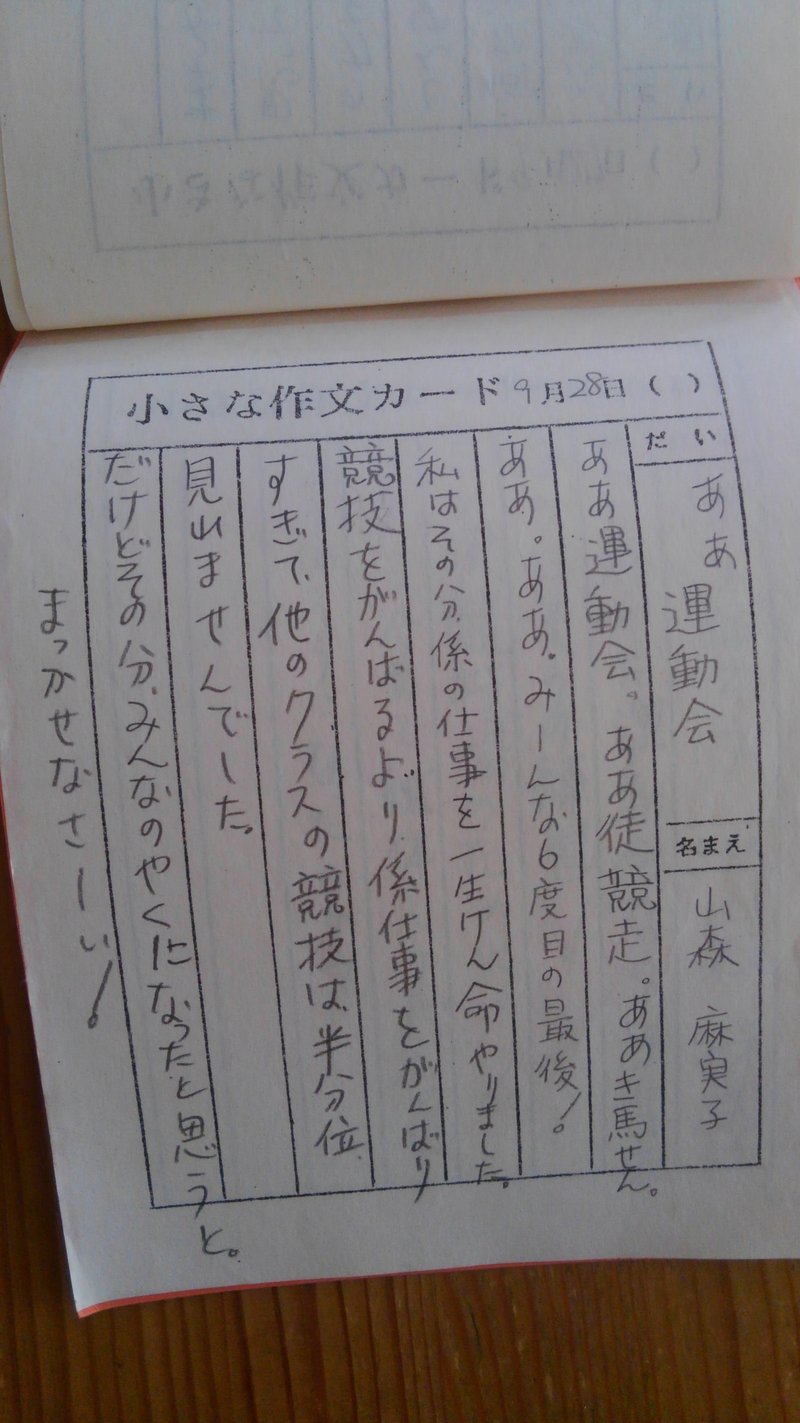 小さな作文カード 9月28日( )
だい
ああ運動会
名まえ
山森 麻実子
ああ運動会。ああ徒競走。ああき馬せん。
ああ。ああ。みーんな6度目の最後!
私はその分、係の仕事を一生けん命やりました。
競技をがんばるより、係仕事をがんばり
すぎて、他のクラスの競技は、半分位
見ませんでした。
だけどその分、みんなのやくになったと思うと。
まっかせなさーい!